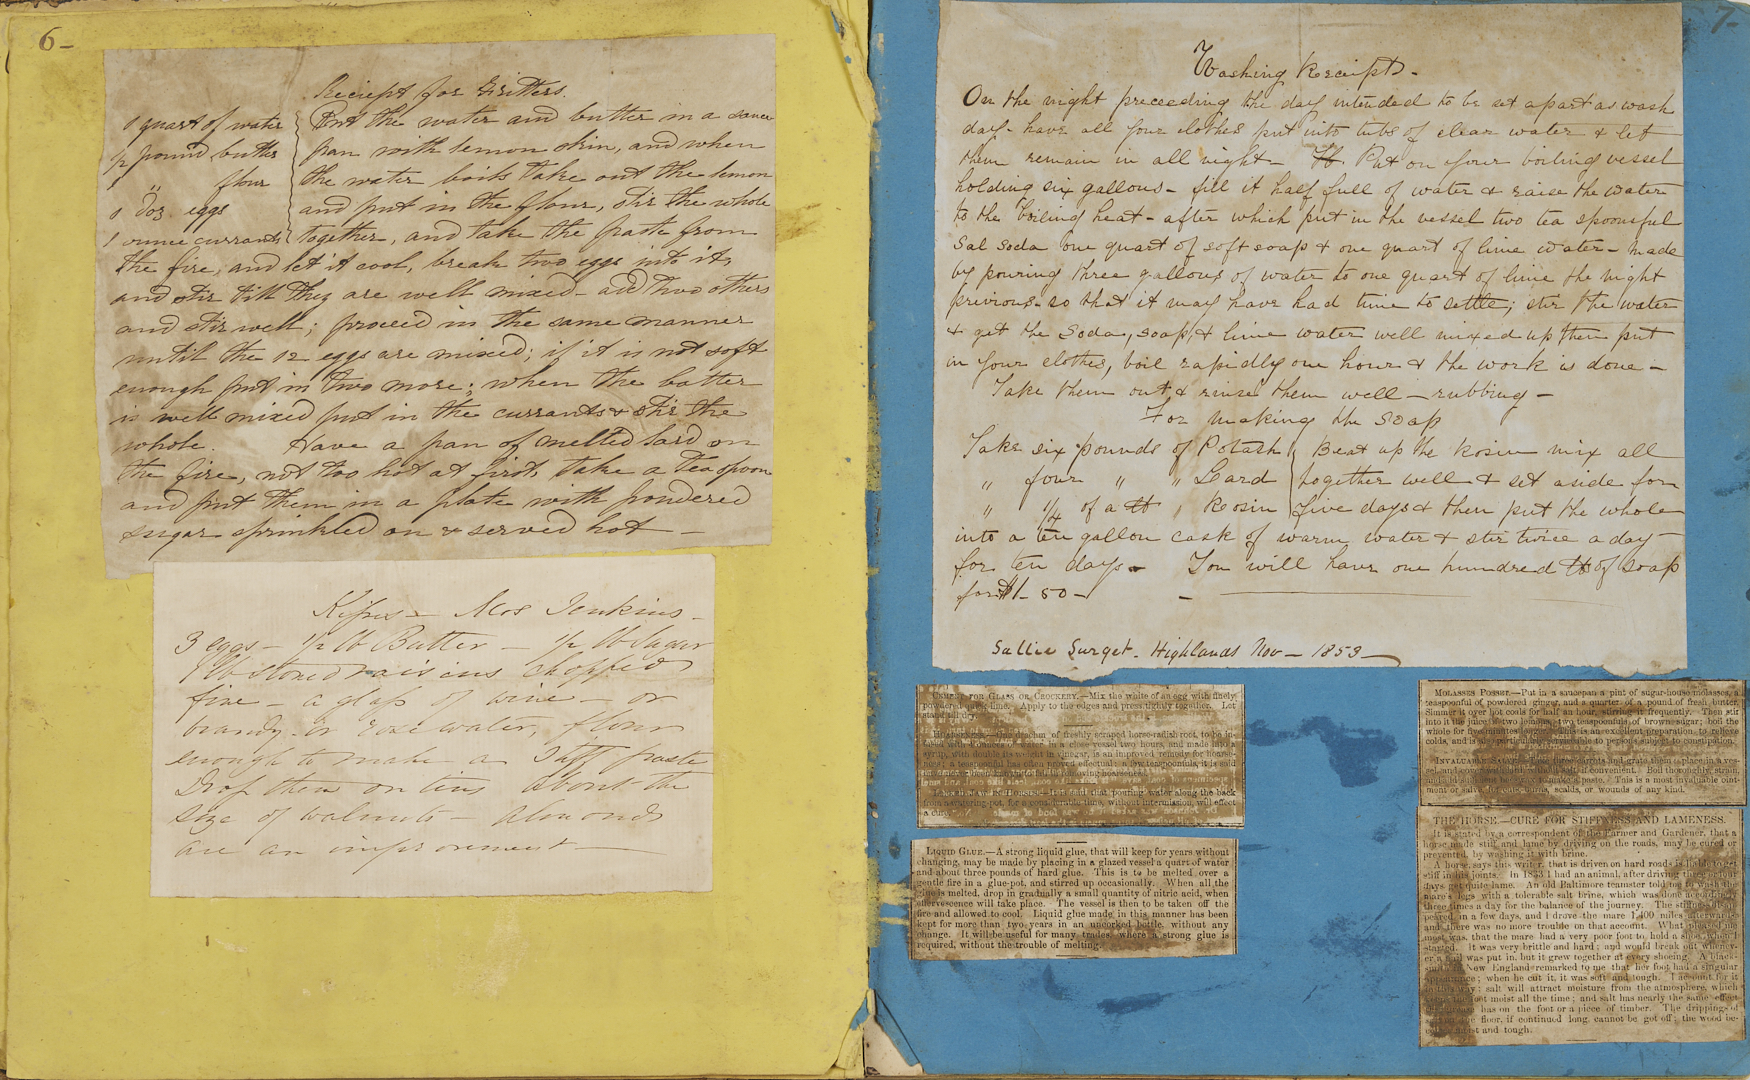 6-
Reciept for Fritters.
1 quart of water
½ pound butter
1 " flour
1 Doz eggs
1 ounce currants
Put the water and butter in a sauce
pan with lemon skin, and when
the water boils take out the lemon
and put in the flour, stir the whole
together, and take the paste from
the fire, and let it cool, break two eggs into it,
and stir till they are well mixed - add two others
and stir well; proceed in the same manner
until the 12 eggs are mixed; if it is not soft
enough put in two more; when the batter
is well mixed put in the currants & stir the
whole. Have a pan of melted lard on
the fire, not too hot at first, take a tea spoon
and put them in a plate with powdered
sugar sprinkled on & served hot -
Kisses - Mrs Jenkins -
3 eggs - ½ lb Butter - ½ lb Sugar
1 lb stoned raisins chopped
fine - a glass of wine - or
brandy or rose water, flour
enough to make a stiff paste
Drop them on tins about the
size of walnuts - Almonds
are an improvement -
7-
Washing Receipt -
On the night preceeding the day intended to be set apart as wash
day - have all your clothes put into tubs of clear water & let
them remain in all night - Put on your boiling vessel
holding six gallons - fill it half full of water & raise the water
to the boiling heat - after which put in the vessel two tea spoonsful
Sal soda one quart of soft soap & one quart of lime water - made
by pouring three gallons of water to one quart of lime the night
previous - so that it may have had time to settle; stir the water
& get the soda, soap, & lime water well mixed up then put
in your clothes, boil rapidly one hour & the work is done -
Take them out, & rinse them well - rubbing -
For making the Soap
Take six pounds of Potash
" four " " Leard
" ¼ of a lb " Rosin
Beat up the Rosin mix all
together well & set aside for
five days & then put the whole
into a ten gallon cask of warm water & stir twice a day
for ten days - You will have one hundred lb of soap
for $1-50-
Sallie Surget - Highlands Nov - 1853
CEMENT FOR GLASS OR CROCKERY.—Mix the white of an egg with finely
powdered quick lime. Apply to the edges and press tightly together. Let
stand till dry.
HOARSENESS.—One drachm of freshly scraped horse-radish root, to be in-
fused with four ounces of water in a close vessel two hours, and made into a
syrup, with double its weight in vinegar, is an improved remedy for hoarse-
ness; a teaspoonful has often proved effectual; a few teaspoonfuls, it is said
pouring water along the back
from a watering-pot, for a considerable time, without intermission, will effect
a cure.
LIQUID GLUE.—A strong liquid glue, that will keep for years without
changing, may be made by placing in a glazed vessel a quart of water
and about three pounds of hard glue. This is to be melted over a
gentle fire in a glue-pot, and stirred up occasionally. When all the
glue is melted, drop in gradually a small quantity of nitric acid, when
effervescence will take place. The vessel is then to be taken off the
fire and allowed to cool. Liquid glue made in this manner has been
kept for more than two years in an uncorked bottle, without any
change. It will be useful for many trades, where a strong glue is
required, without the trouble of melting.
MOLASSES POSSET.—Put in a saucepan a pint of sugar-house molasses, a
teaspoonful of powdered ginger, and a quarter of a pound of fresh butter.
Simmer it over hot coals for half an hour, stirring it frequently. Then stir
into it the juice of two lemons, two teaspoonfuls of brown sugar; boil the
whole for five minutes longer. This is an excellent preparation to relieve
colds, and is also particularly serviceable to persons subject to constipation.
INVALUABLE SALVE.—Take three carrots and grate them; place in a ves-
sel and cover with lard, without salt if convenient. Boil thoroughly, strain,
This is a most invaluable oint-
ment or salve for cuts, burns, scalds, or wounds of any kind.
THE HORSE.—CURE FOR STIFFNESS AND LAMENESS.
It is stated by a correspondent of the Farmer and Gardener, that a
horse made stiff and lame by driving on the roads, may be cured or
prevented, by washing it with brine.
A horse, says this writer, that is driven on hard roads is liable to get
stiff in his joints. In 1833 I had an animal, after driving three or four
days, get quite lame. An old Baltimore teamster told me to wash the
mare's legs with a tolerable salt brine, which was done accordingly
three times a day for the balance of the journey. The stiffness disap-
peared in a few days, and I drove the mare 1,400 miles afterwards
and there was no more trouble on that account. What pleased me
most was, that the mare had a very poor foot to hold a shoe when I
started. It was very brittle and hard; and would break out whenev-
er a nail was put in, but it grew together at every shoeing. A black-
smith in New England remarked to me that her foot had a singular
appearance; when he cut it, it was soft and tough. I account for it
in this way: salt will attract moisture from the atmosphere, which
kept the foot moist all the time; and salt has nearly the same effect
has on the foot or a piece of timber. The drippings of
floor, if continued long, cannot be got off; the wood be-
comes moist and tough.